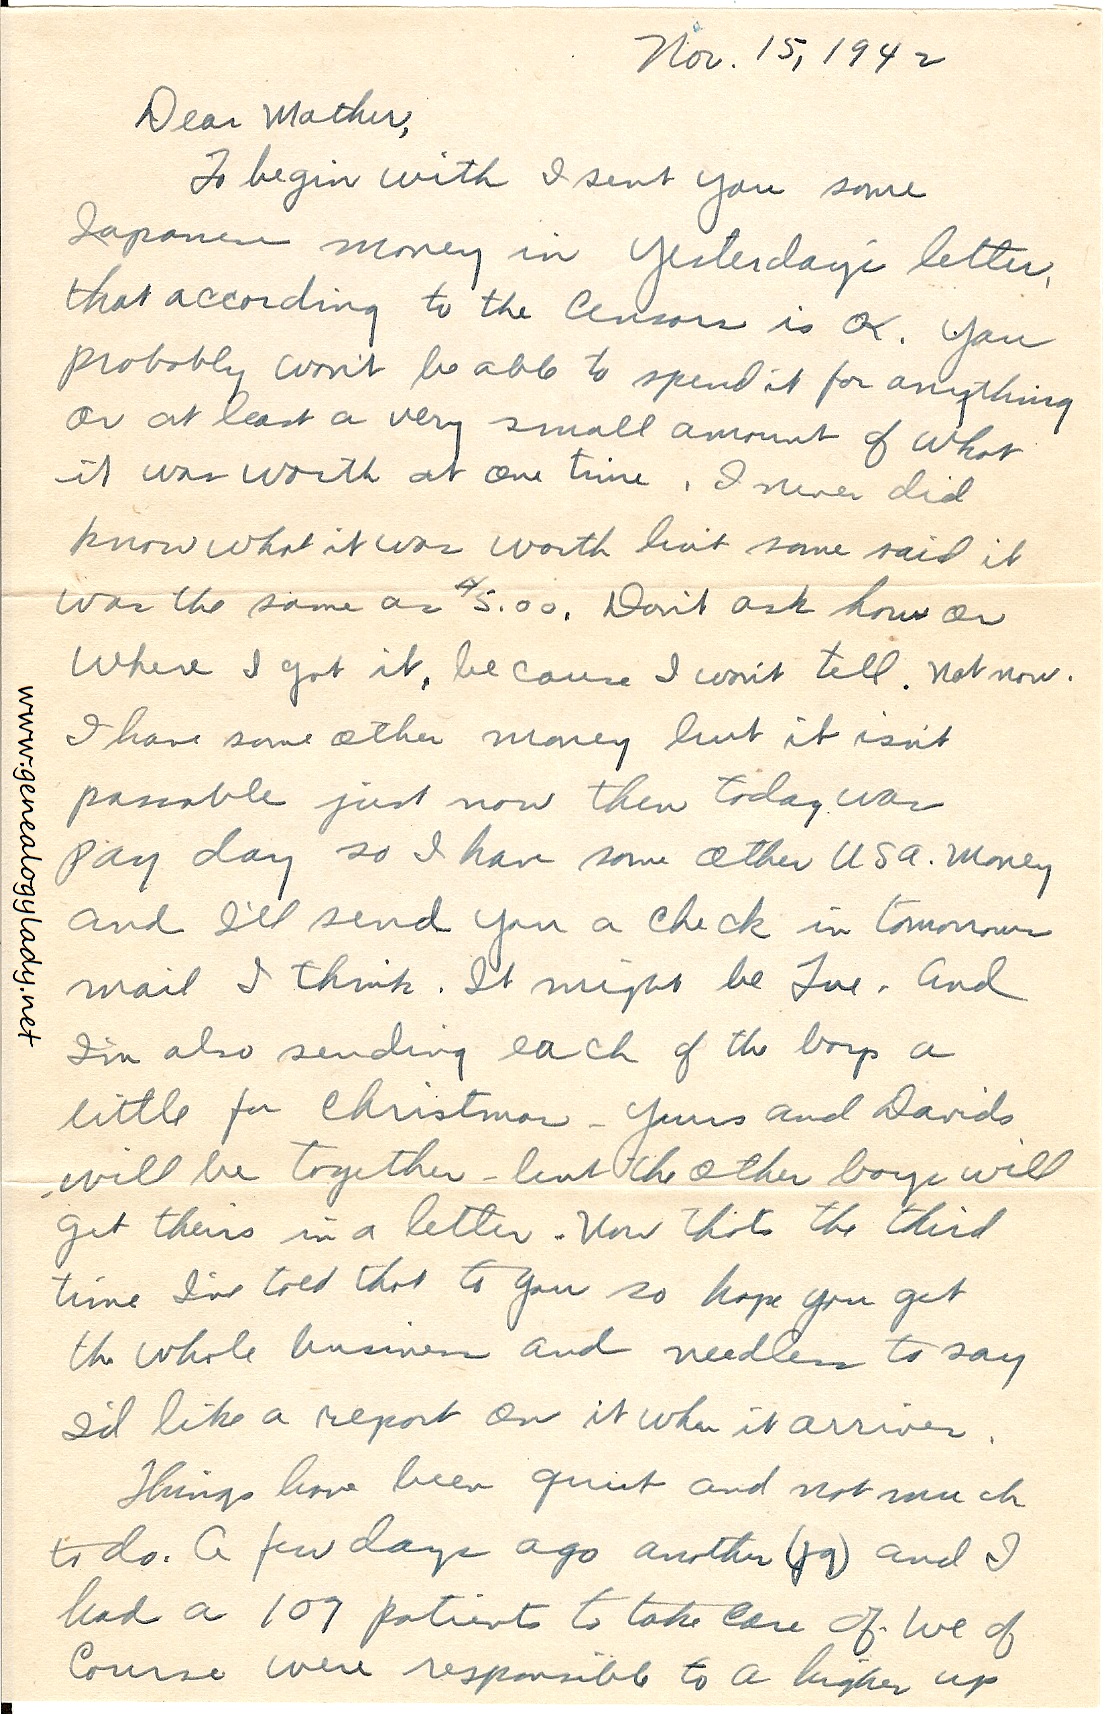 Nov. 15, 1942
Dear Mother,
To begin with I sent you some
Japanese money in yesterday's letter,
that according to the Censors is OK. You
probably won't be able to spend it for anything
or at least a very small amount of what
it was worth at one time. I never did
know what it was worth but some said it
was the same as $5.00. Don't ask how or
where I got it, because I won't tell. Not now.
I have some other money but it isn't
passable just now then today was
pay day so I have some other USA. Money
and I'll send you a check in tomorrows
mail I think. It might be Tue. And
I'm also sending each of the boys a
little for Christmas - Yours and Davids
will be together - but the other boys will
get theirs in a letter - Now thats the third
time I've told that to you so hope you get
the whole business and needless to say
I'd like a report on it when it arrives.
Things have been quiet and not much
to do. A few days ago another and I
had a 109 patients to take care of. We of
Course were responsible to a higher up
www.genealogylady.net